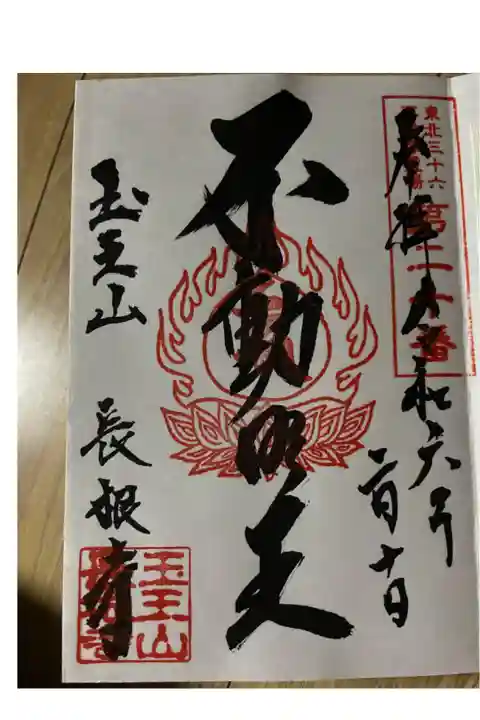 東北三十六
不動尊霊場
第二十番
奉拝 令和六年
二月十日
不動明王
玉王山 長根寺
玉王山
長根寺